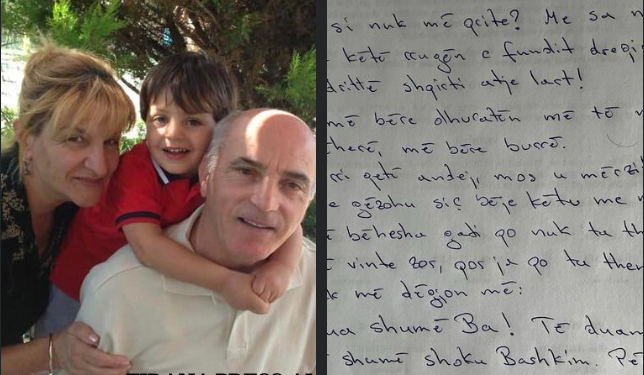 si nuk më qite? Me sa
këtë rrugën e fundit drejt
drittë shpirti atje lart!
më bëre dhuratën më të
herë, më bëre burrë.
rri qetë andej, mos u mërzit
e gëzohu siç bëje këtu me
bëhesha gadi po nuk ta th
vinte zor, por ja po ta them
më dëgjon më:
ua shumë Ba! Të duam
shumë shoku Bashkim. Pë
TIRANA PRESS.AL